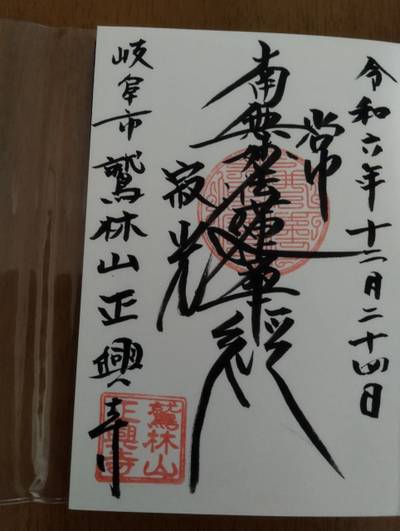 令和六年十二月二十四日
常
南無妙法蓮華経
寂光
岐阜市 鷲林山 正興寺
鷲林山
正興寺